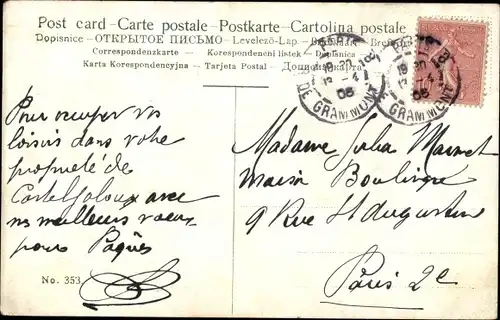 Post card - Carte postale - Postkarte - Cartolina postale
Dopisnice - ОТКРЫТОЕ ПИСЬМО - Levelező-Lap.
Correspondenzkarte - Korespondenční lístek - Dopisnica
Karta Korespondencyjna - Tarjeta Postal - Дописна карта
PARIS 18
19 20
- 4
05
DE GRAMMONT
PARIS 18
19 20
- 4
05
DE GRAMMONT
Pour occuper vos
loisirs dans votre
propriété de
Casteljaloux avec
mes meilleurs vœux
pour Pâques
No. 353
Madame Julia
Maison Boulingre
9 Rue St Augustin
Paris 2e